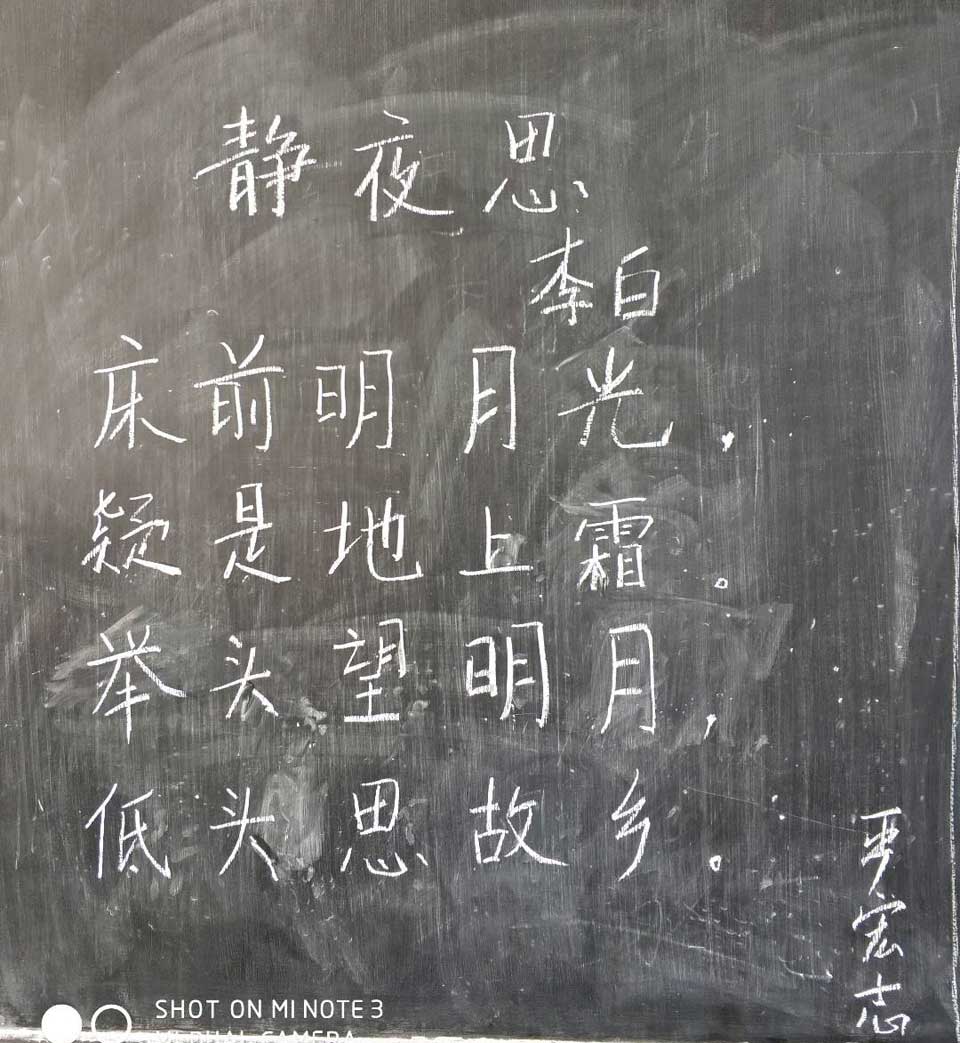 静夜思
李白
床前明月光，
疑是地上霜。
举头望明月，
低头思故乡。
宏志
SHOT ON MI NOTE 3